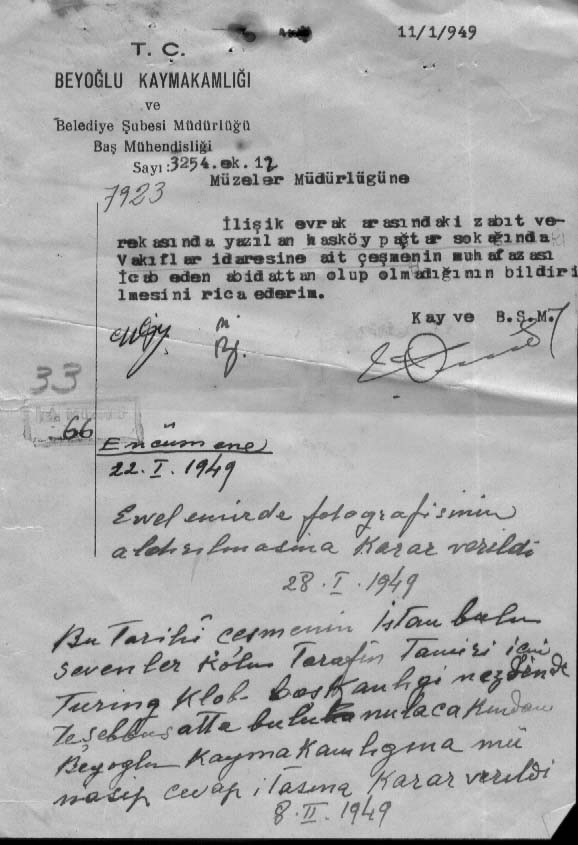 11/1/949
T. Ç.
BEYOĞLU KAYMAKAMLIĞI
ve
Belediye Şubesi Müdürlüğü
Baş Mühendisliği
Sayı:3254.ek.12
7923
Müzeler Müdürlügüne
İlişik evrak arasındaki zabıt ve-
rekasında yazılan hasköy sokağında
Vakıflar idaresine ait çeşmenin muhafazası
İcab eden abidattan olup olmadığının bildiri
lmesini rica ederim.
Kay ve B.Ş.M.
33
66
Encümene
22.I.1949
Evvel emirde fotografisinin
aldırılmasına Karar verildi
28.I.1949
Bu Tarihî çeşmenin İstanbulu
sevenler Tarafın Tamiri için
Turing Klob başkanlıgi nezdinde
teşebbüsatta bulunulacakından
Beyoglu Kaymakamlıgına mü
nasip cevap itasına Karar verildi
8.II.1949